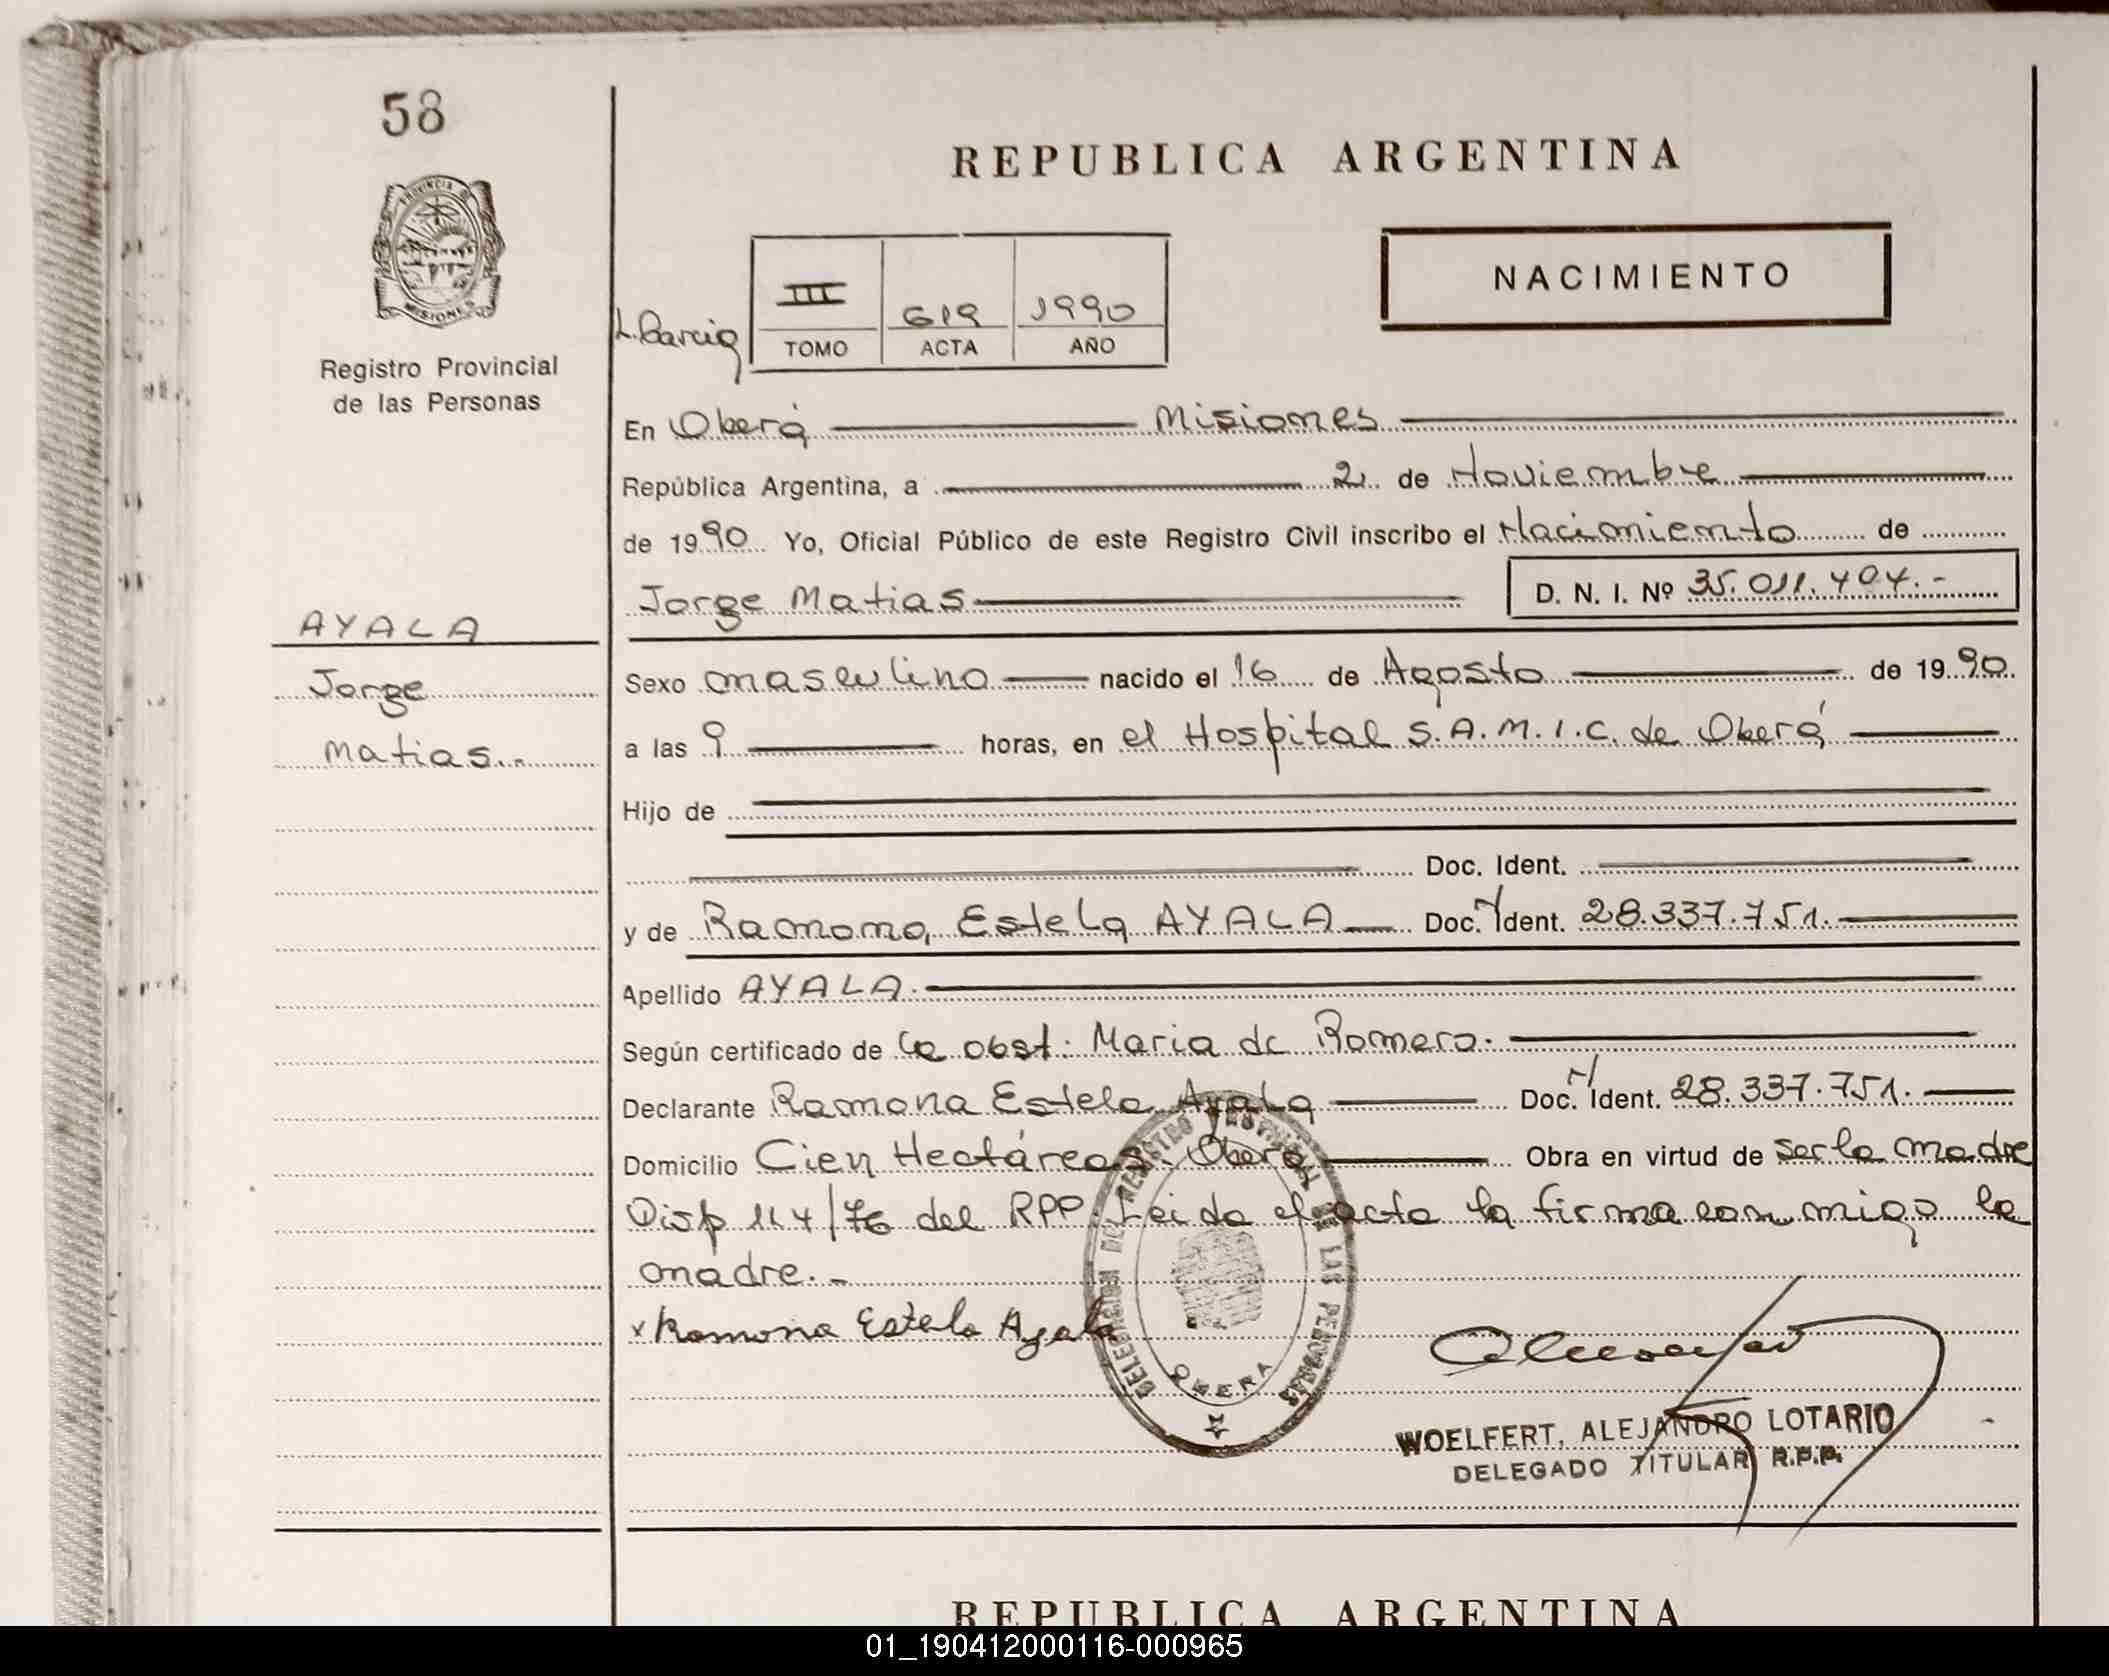 58
REPUBLICA ARGENTINA
PROVINCIA DE
MISIONES
Registro Provincial
de las Personas
NACIMIENTO
III 619 1990
TOMO ACTA AÑO
En Oberá Misiones
República Argentina, a 2 de Noviembre
de 1990 Yo, Oficial Público de este Registro Civil inscribo el Nacimiento de
Jorge Matias D. N. I. Nº 35.011.404.-
AYALA
Jorge
Matias.-
Sexo masculino nacido el 16 de Agosto de 1990
a las 9 horas, en el Hospital S.A.M.I.C. de Oberá
Hijo de
Doc. Ident.
y de Ramona Estela AYALA Doc. Ident. 28.337.751.
Apellido AYALA.
Según certificado de la obst. Maria de Romero.
Declarante Ramona Estela Ayala Doc. Ident. 28.337.751.
Domicilio Cien Hectáreas. Oberá Obra en virtud de ser la madre
Disp 114/76 del RPP. Leida el acta la firma conmigo la
madre.-
x Ramona Estela Ayala
DELEGACION DEL REGISTRO PROVINCIAL DE LAS PERSONAS
OBERA
WOELFERT, ALEJANDRO LOTARIO
DELEGADO TITULAR R.P.P.
REPUBLICA ARGENTINA
01_190412000116-000965